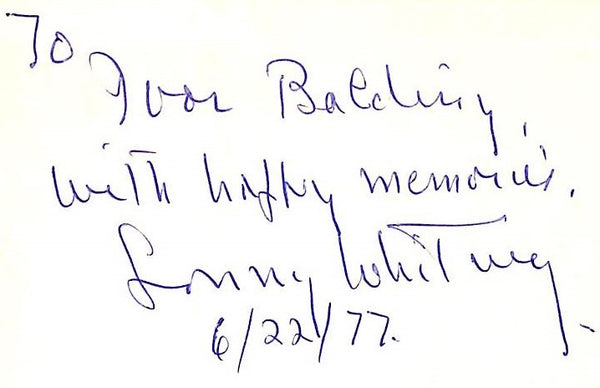 To
Ivor Balding,
with happy memories.
Sonny Whitney
6/22/77.